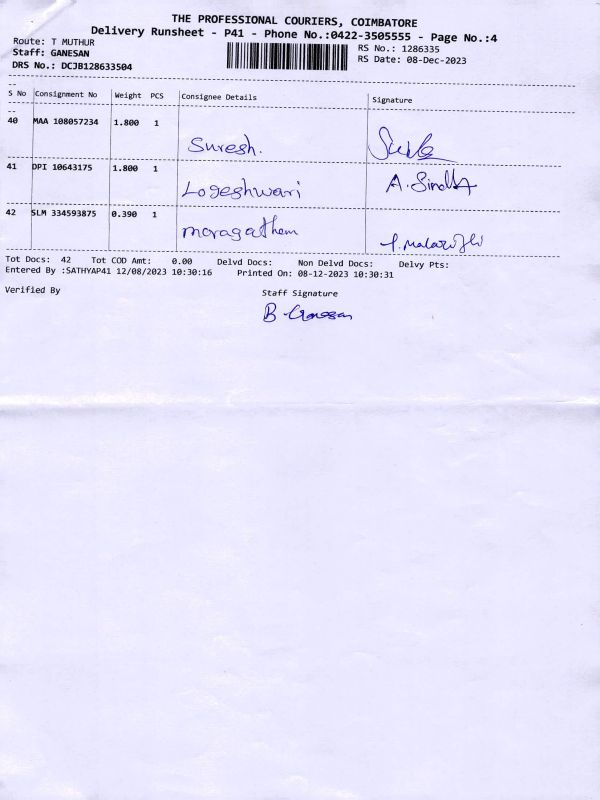 THE PROFESSIONAL COURIERS, COIMBATORE
Delivery Runsheet - P41 - Phone No.:0422-3505555 - Page No.:4
Route: T MUTHUR
RS No.: 1286335
Staff: GANESAN
RS Date: 08-Dec-2023
DRS No.: DCJB128633504
S No Consignment No Weight PCS Consignee Details Signature
40 MAA 108057234 1.800 1
Suresh.
41 DPI 10643175 1.800 1 A. Sindhu
Logeshwari
42 SLM 334593875 0.390 1
maragatham
Tot Docs: 42 Tot COD Amt: 0.00 Delvd Docs: Non Delvd Docs: Delvy Pts:
Entered By :SATHYAP41 12/08/2023 10:30:16 Printed On: 08-12-2023 10:30:31
Verified By Staff Signature
B. Ganesan